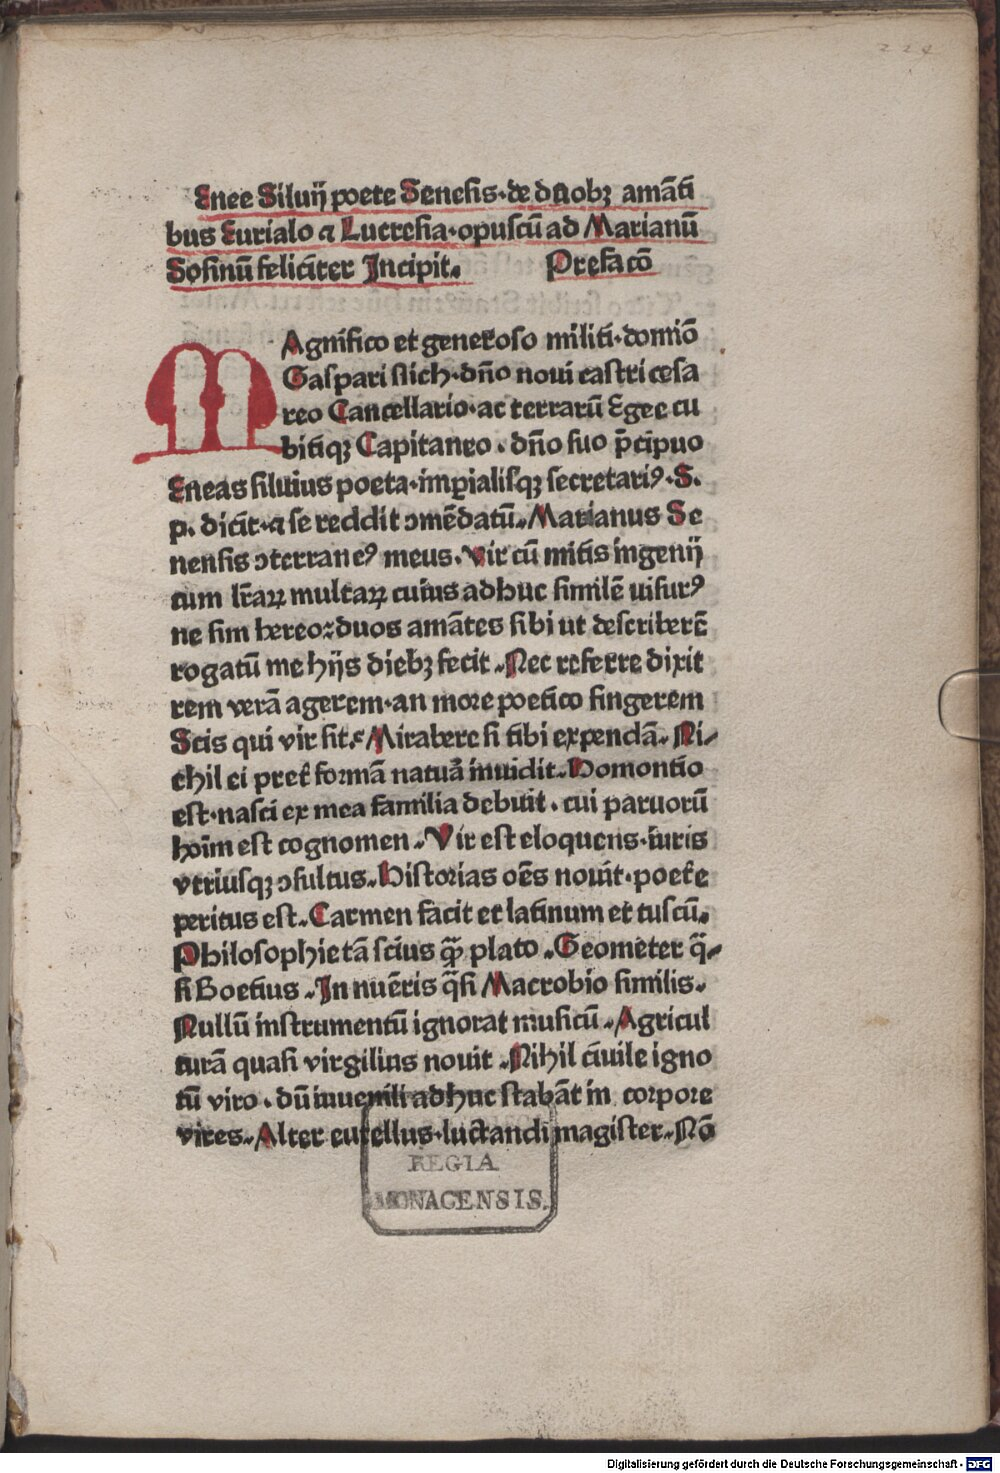 224
Enee Siluij poete Senesis·de duobꝫ amãti
bus Eurialo ⁊ Lucresia·opuscũ ad Marianũ
Sosinũ feliciter Incipit. Prefacõ
MAgnifico et generoso militi·domĩo
Gaspari slich·dño noui castri cesa
reo Cancellario·ac terrarũ Egre cu
bitiqꝫ Capitaneo·dño suo p̃cipuo
Eneas siluius poeta·imꝑialisqꝫ secretariꝰ·S.
p. dicit·⁊ se reddit ꝯmẽdatũ. Marianus Se
nensis ꝯterraneꝰ meus. Vir cũ mitis ingenij
tum lr̃aꝝ multaꝝ cuius adhuc similẽ uisurꝰ
ne sim hereo: duos amãtes sibi ut describerẽ
rogatũ me hijs diebꝫ fecit. Nec referre dixit
rem verã agerem·an more poetico fingerem
Scis qui vir sit. Mirabere si tibi expendã. Ni-
chil ei pret̃ formã naturã inuidit. Homontio
est·nasci ex mea familia debuit·cui paruorũ
hoĩm est cognomen. Vir est eloquens·iuris
vtriusqꝫ ꝯsultus. Historias oẽs nouit·poet̃e
peritus est. Carmen facit et latinum et tuscũ.
Philosophie tã scius qᷓꝫ plato. Geometer qᷓ-
si Boetius. In nũeris qᷓsi Macrobio similis.
Nullũ instrumentũ ignorat musicũ. Agricul
turã quasi virgilius nouit. Nihil ciuile igno
tũ viro. dũ iuuenili adhuc stabãt in corpore
vires. Alter eutellus·luctandi magister. Nõ
REGIA
MONACENSIS.
Digitalisierung gefördert durch die Deutsche Forschungsgemeinschaft - DFG